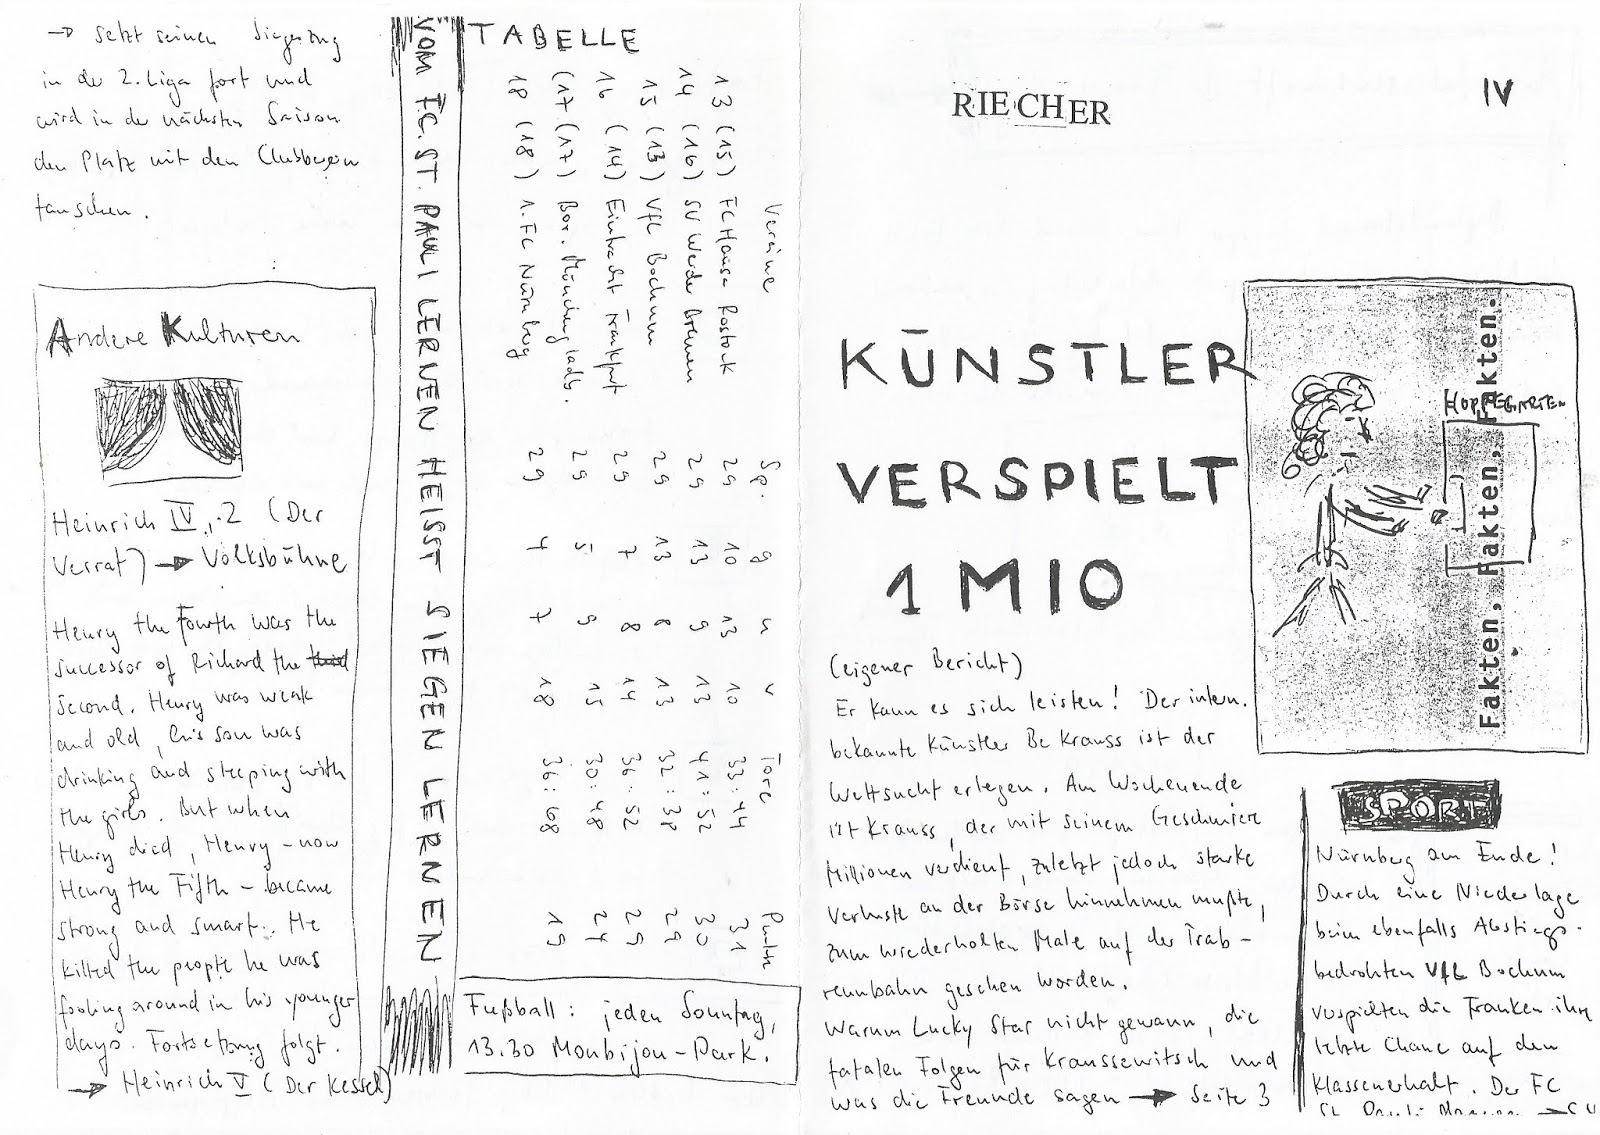 → setzt seinen Siegeszug
in der 2. Liga fort und
wird in der nächsten Saison
den Platz mit den Clubberern
tauschen.
Andere Kulturen
Heinrich IV., 2 (Der
Verrat) → Volksbühne
Henry the Fourth was the
successor of Richard the
Second. Henry was weak
and old, his son was
drinking and sleeping with
the girls. But when
Henry died, Henry – now
Henry the Fifth – became
strong and smart. He
killed the people he was
fooling around in his younger
days. Fortsetzung folgt.
→ Heinrich V (Der Kessel)
VOM F.C. ST. PAULI LERNEN HEISST SIEGEN LERNEN
TABELLE
Vereine Sp. g u v Tore Punkte
13 (15) FC Hansa Rostock 29 10 13 10 33:44 31
14 (16) SV Werder Bremen 29 13 9 13 41:52 30
15 (13) VfL Bochum 29 13 8 13 32:38 29
16 (14) Eintracht Frankfurt 29 7 8 14 36:52 29
(17 (17) Bor. Mönchengladb. 29 5 9 15 30:48 24
18 (18) 1. FC Nürnberg 29 4 7 18 36:68 19
Fußball: jeden Sonntag,
13.30 Monbijou-Park.
RIECHER
IV
KÜNSTLER
VERSPIELT
1 MIO
HOPPEGARTEN
Fakten, Fakten, Fakten.
(eigener Bericht)
Er kann es sich leisten! Der intern.
bekannte Künstler Be Krauss ist der
Wettsucht erlegen. Am Wochenende
ist Krauss, der mit seinem Geschmiere
Millionen verdient, zuletzt jedoch starke
Verluste an der Börse hinnehmen mußte,
zum wiederholten Male auf der Trab-
rennbahn gesehen worden.
Warum Lucky Star nicht gewann, die
fatalen Folgen für Kraussewitsch und
was die Freunde sagen → Seite 3
SPORT
Nürnberg am Ende!
Durch eine Niederlage
beim ebenfalls Abstiegs-
bedrohten VfL Bochum
verspielten die Franken ihre
letzte Chance auf den
Klassenerhalt. Der FC
St. Pauli